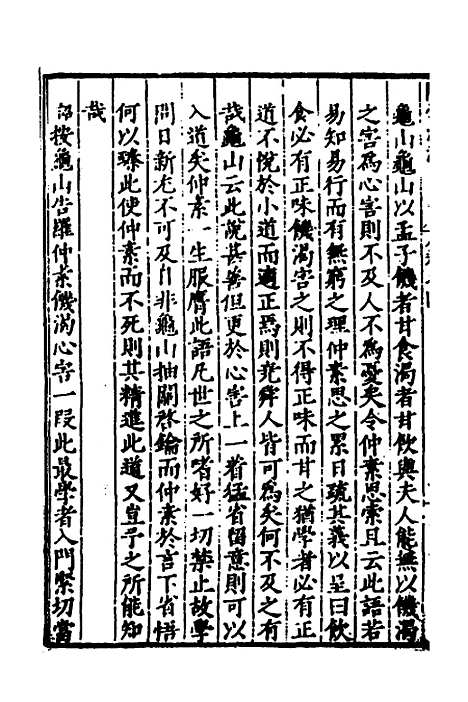 龜山龜山以孟子饑者甘食渴者甘飲與夫人能無以饑渴
之害為心害則不及人不為憂矣令仲素思索且云此語若
易知易行而有無窮之理仲素思之累日疏其義以呈曰飲
食必有正味饑渴害之則不得正味而甘之猶學者必有正
道不悅於小道而適正焉則堯舜人皆可為矣何不及之有
哉龜山云此説甚善但更於心害上一着猛省留意則可以
入道矣仲素一生服膺此語凡世之所嗜好一切禁止故學
問日新尤不可及自非龜山抽關啓鑰而仲素於言下省悟
何以臻此使仲素而不死則其精進此道又豈予之所能知
哉
按龜山告羅仲素饑渴心害一段此最學者入門緊切當